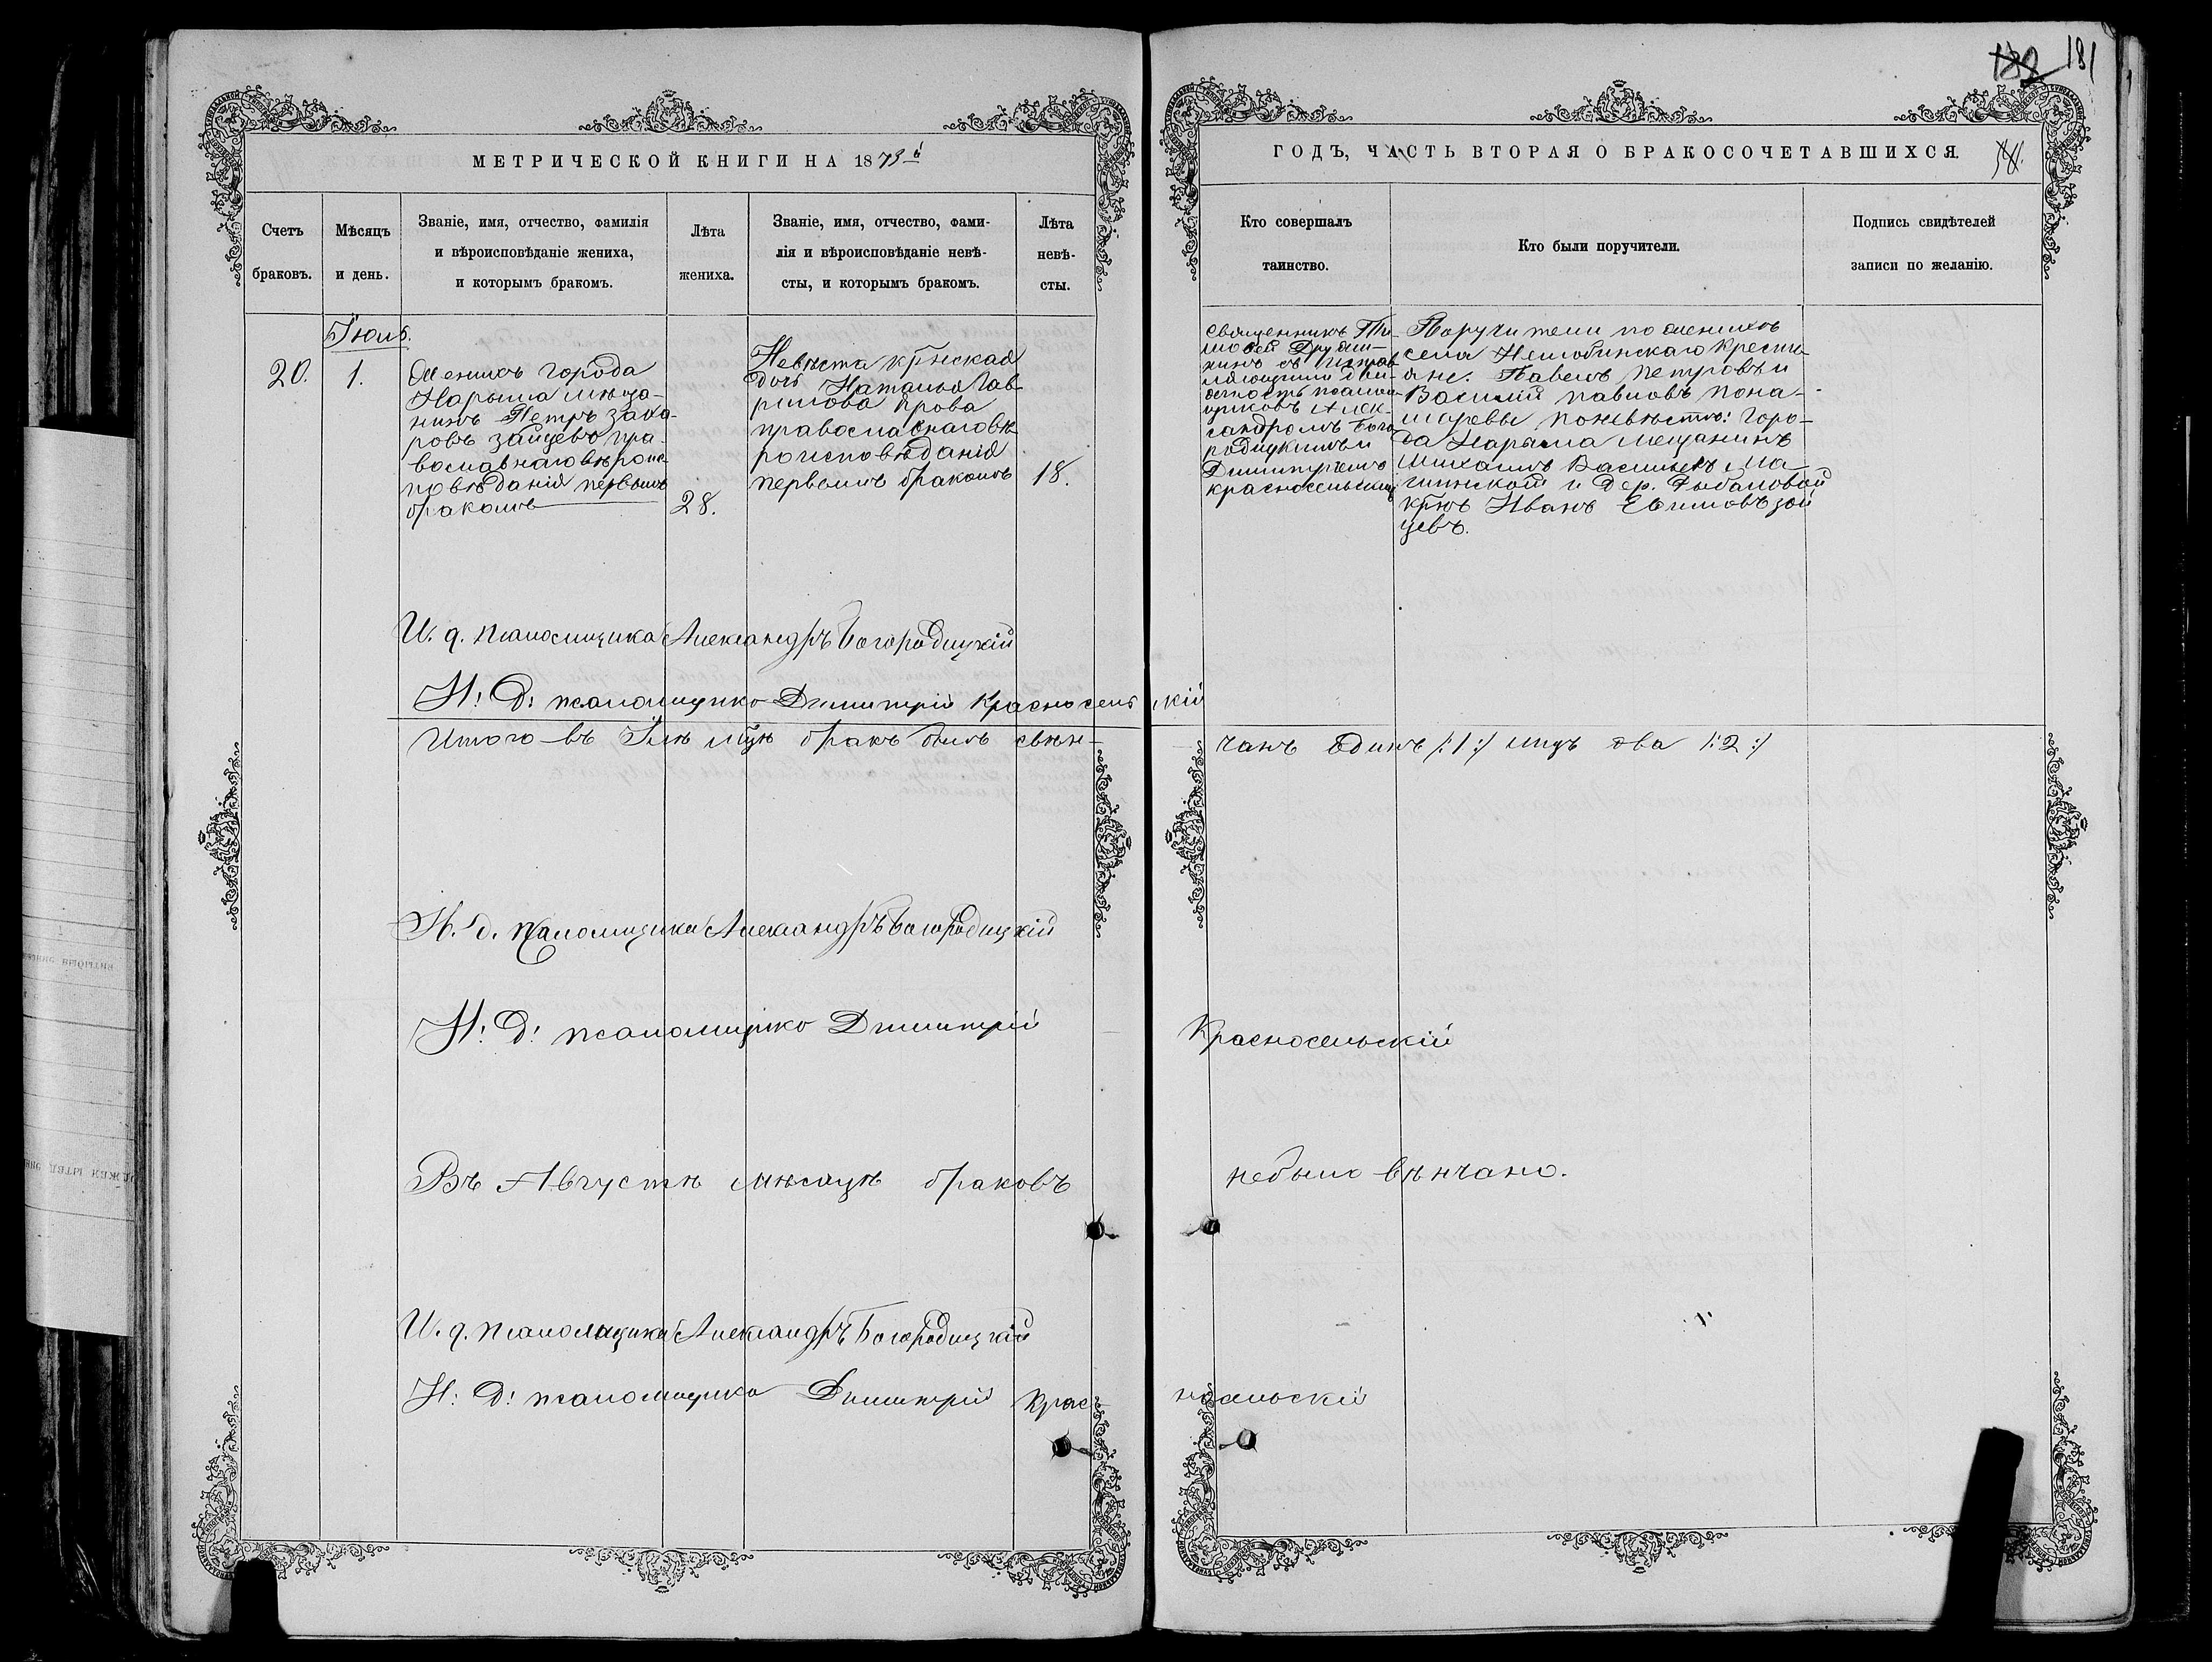 132 181
МЕТРИЧЕСКОЙ КНИГИ НА 1873й
ГОДЪ, ЧАСТЬ ВТОРАЯ О БРАКОСОЧЕТАВШИХСЯ.
Счетъ
браковъ.
Мѣсяцъ
и день.
Званіе, имя, отчество, фамилія
и вѣроисповѣданіе жениха,
и которымъ бракомъ.
Лѣта
жениха.
Званіе, имя, отчество, фами-
лія и вѣроисповѣданіе невѣ-
сты, и которымъ бракомъ.
Лѣта
невѣ-
сты.
Кто совершалъ
таинство.
Кто были поручители.
Подпись свидѣтелей
записи по желанію.
Іюль.
20.
1.
Женихъ города
Нарыма мѣща-
нинъ Петръ Заха-
ровъ Зайцевъ пра-
вославнаго вѣроис-
повѣданія первымъ
бракомъ
28.
Невѣста крнская
дочь Наталья Гав-
рилова Прова
православнаго вѣ-
роисповѣданія
первымъ бракомъ
18.
Священникъ Ти-
мофей
съ исправ-
ляющими дол-
жность псалом-
щиковъ Алек-
сандромъ Бого-
родицкимъ и
Димитріемъ
Красносельским
Поручители по женихѣ
села кресть-
яне. Павелъ Петровъ и
Василій Павловъ Пона-
маревы по невѣстѣ: горо-
да Нарыма мещанинъ
Михаилъ Васильевъ
и дер. Рыбаловой
крнъ Иванъ Евимовъ Зай
цевъ.
И. д. псаломщика Александръ Богородицкій
И: Д: псаломщика Димитрій Красносельскій
Итого въ Іюлѣ мцѣ бракъ былъ свѣн-
чанъ один /:1:/ лицъ два /:2:/
И. д. псаломщика Александръ Богородицкій
И: Д: псаломщика Димитрій Красносельскій
Въ Августѣ мѣсяцѣ браковъ небыло вѣнчано.
И. д. псаломщика Александръ Богородицкій
И: Д: псаломщика Димитрій Крас-
носельскій